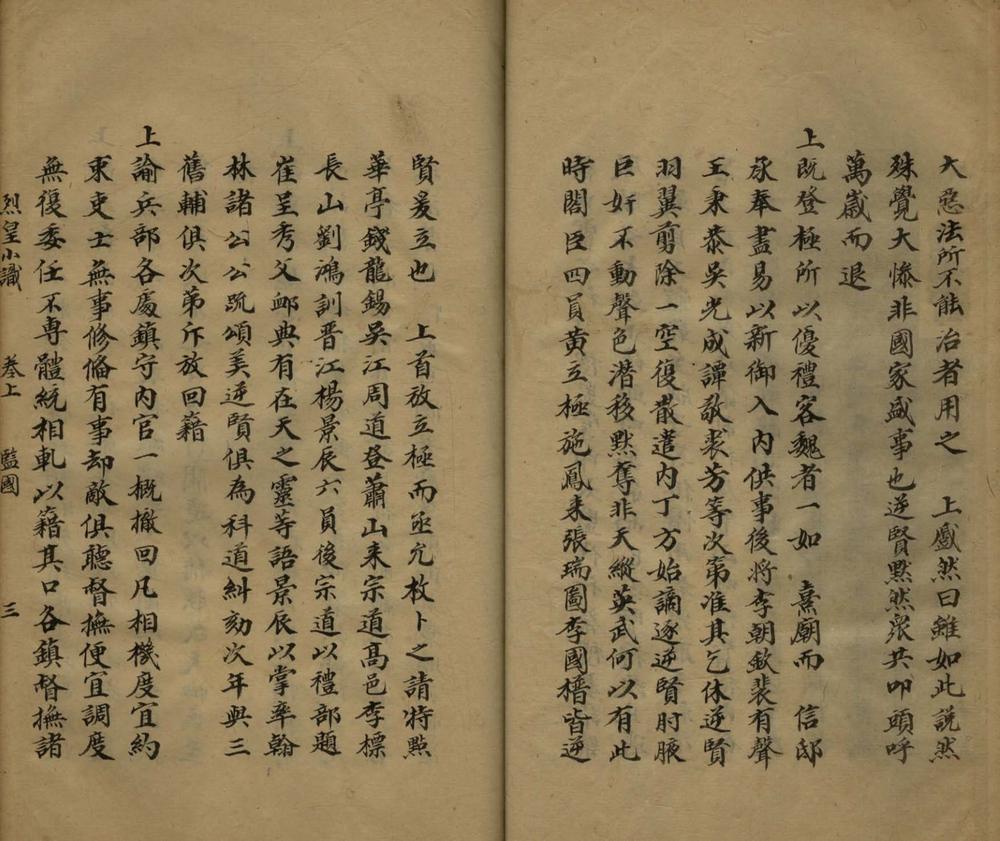 大惡法所不能治者用之　上慼然曰雖如此説然
殊覺大慘非國家盛事也逆賢黙然衆共叩頭呼
萬歲而退
上既登極所以優禮客魏者一如　熹廟而　信邸
承奉盡易以新御入內供事後將李朝欽裴有聲
王秉恭吳光成譚敬裘芳等次第准其乞休逆賢
羽翼剪除一空復散遣内丁方始謫逐逆賢肘腋
巨奸不動聲色潜移黙奪非天縱英武何以有此
時閣臣四員黄立極施鳳来張瑞圖李國𣚴皆逆
賢爰立也　上首放立極而亟允枚卜之請特點
華亭錢龍錫吳江周道登蕭山来宗道高邑李標
長山劉鴻訓晋江楊景辰六員後宗道以禮部題
崔呈秀父邺典有在天之靈等語景辰以掌率翰
林諸公公疏頌美逆賢俱為科道糾劾次年與三
舊輔俱次第斥放回籍
上諭兵部各處鎮守内官一概撤回凡相機度宜約
束吏士無事修俻有事却敵俱聽督撫便宜調度
無復委任不專體統相軋以籍其口各鎮督撫諸
烈皇小識　卷上　監國　三